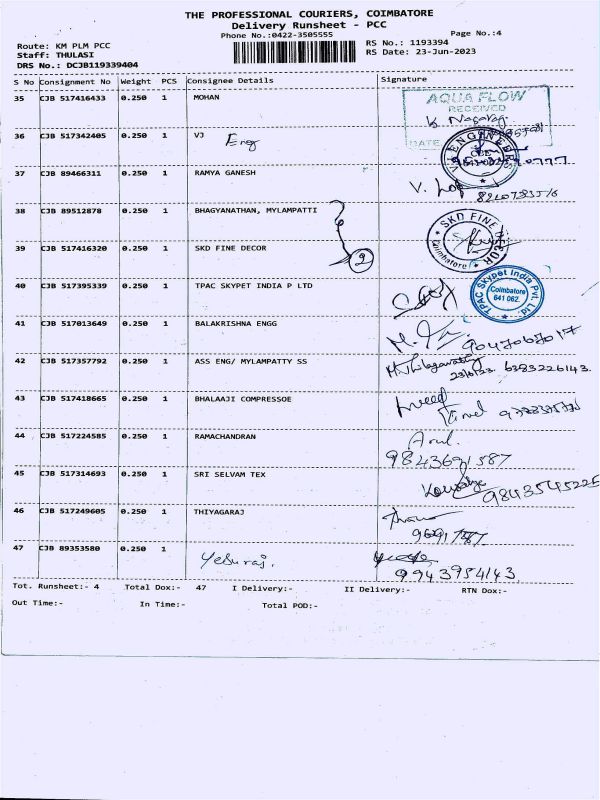 THE PROFESSIONAL COURIERS, COIMBATORE
Delivery Runsheet - PCC
Phone No.:0422-3505555
Page No.:4
Route: KM PLM PCC
Staff: THULASI
DRS No.: DCJB119339404
RS No.: 1193394
RS Date: 23-Jun-2023
S No Consignment No Weight PCS Consignee Details Signature
35 CJB 517416433 0.250 1 MOHAN
AQUA FLOW
RECEIVED
DATE
36 CJB 517342405 0.250 1 VJ Eng
VJ ENGINEERS
37 CJB 89466311 0.250 1 RAMYA GANESH
38 CJB 89512878 0.250 1 BHAGYANATHAN, MYLAMPATTI
SKD FINE DECOR
Coimbatore
39 CJB 517416320 0.250 1 SKD FINE DECOR
2
40 CJB 517395339 0.250 1 TPAC SKYPET INDIA P LTD
TPAC Skypet India Pvt. Ltd
Coimbatore
641 062.
41 CJB 517013649 0.250 1 BALAKRISHNA ENGG
9047067017
42 CJB 517357792 0.250 1 ASS ENG/ MYLAMPATTY SS
23/6/23. 6383226143.
43 CJB 517418665 0.250 1 BHALAAJI COMPRESSOE
44 CJB 517224585 0.250 1 RAMACHANDRAN Arul.
9843691587
45 CJB 517314693 0.250 1 SRI SELVAM TEX
9843545225
46 CJB 517249605 0.250 1 THIYAGARAJ
47 CJB 89353580 0.250 1 Yesuraj.
9943954143
Tot. Runsheet:- 4 Total Dox:- 47 I Delivery:- II Delivery:- RTN Dox:-
Out Time:- In Time:- Total POD:-